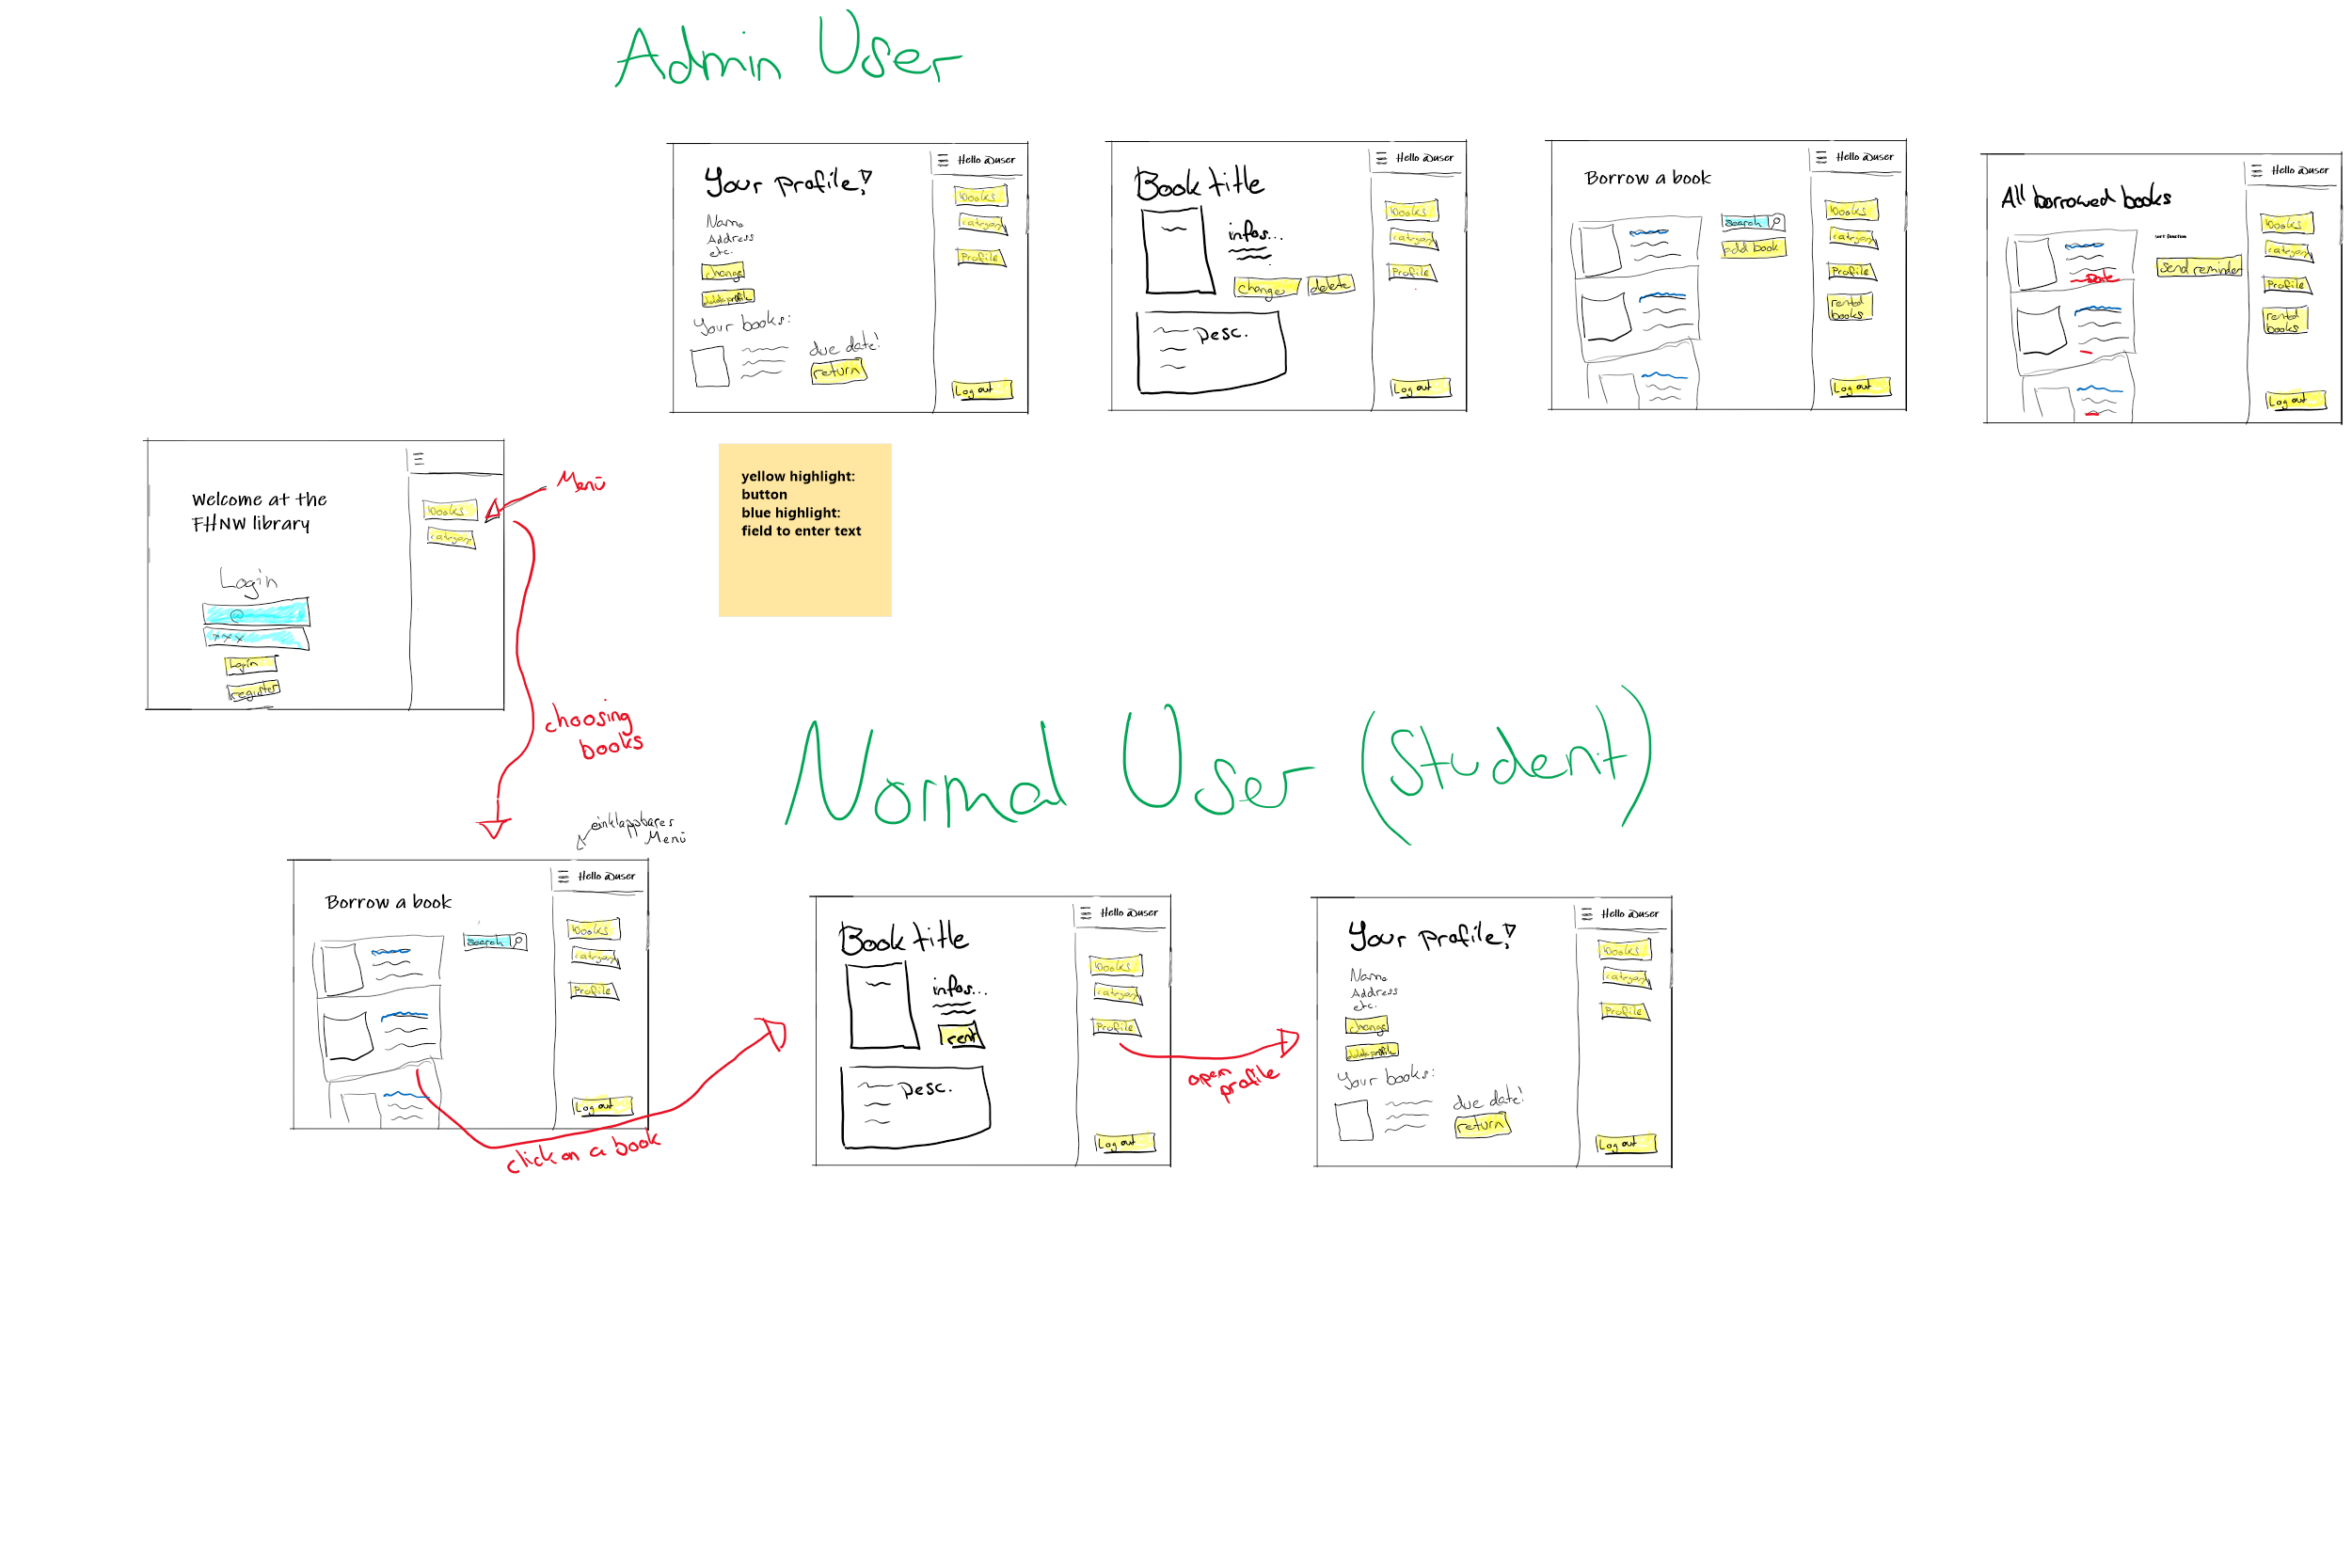 Admin User
Your profile!
Name
Address
etc.
change
delete profile
Your books:
due date!
return
Hello @user
books
category
Profile
Log out
Book title
infos...
change
delete
Desc.
Hello @user
books
category
Profile
Log out
Borrow a book
search
add book
Hello @user
books
category
Profile
rented
books
Log out
All borrowed books
Date
sort function
send reminder
Hello @user
books
category
Profile
rented
books
Log out
Welcome at the
FHNW library
Login
@
xxx
Login
register
books
category
Menü
yellow highlight:
button
blue highlight:
field to enter text
choosing
books
Normal User (Student)
einklappbares
Menü
Borrow a book
search
Hello @user
books
category
Profile
Log out
click on a book
Book title
infos...
rent
Desc.
Hello @user
books
category
Profile
Log out
open
profile
Your profile!
Name
Address
etc.
change
delete profile
Your books:
due date!
return
Hello @user
books
category
Profile
Log out